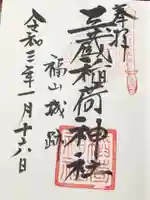 奉拝
三蔵稲荷神社
福山城跡
令和三年一月十六日